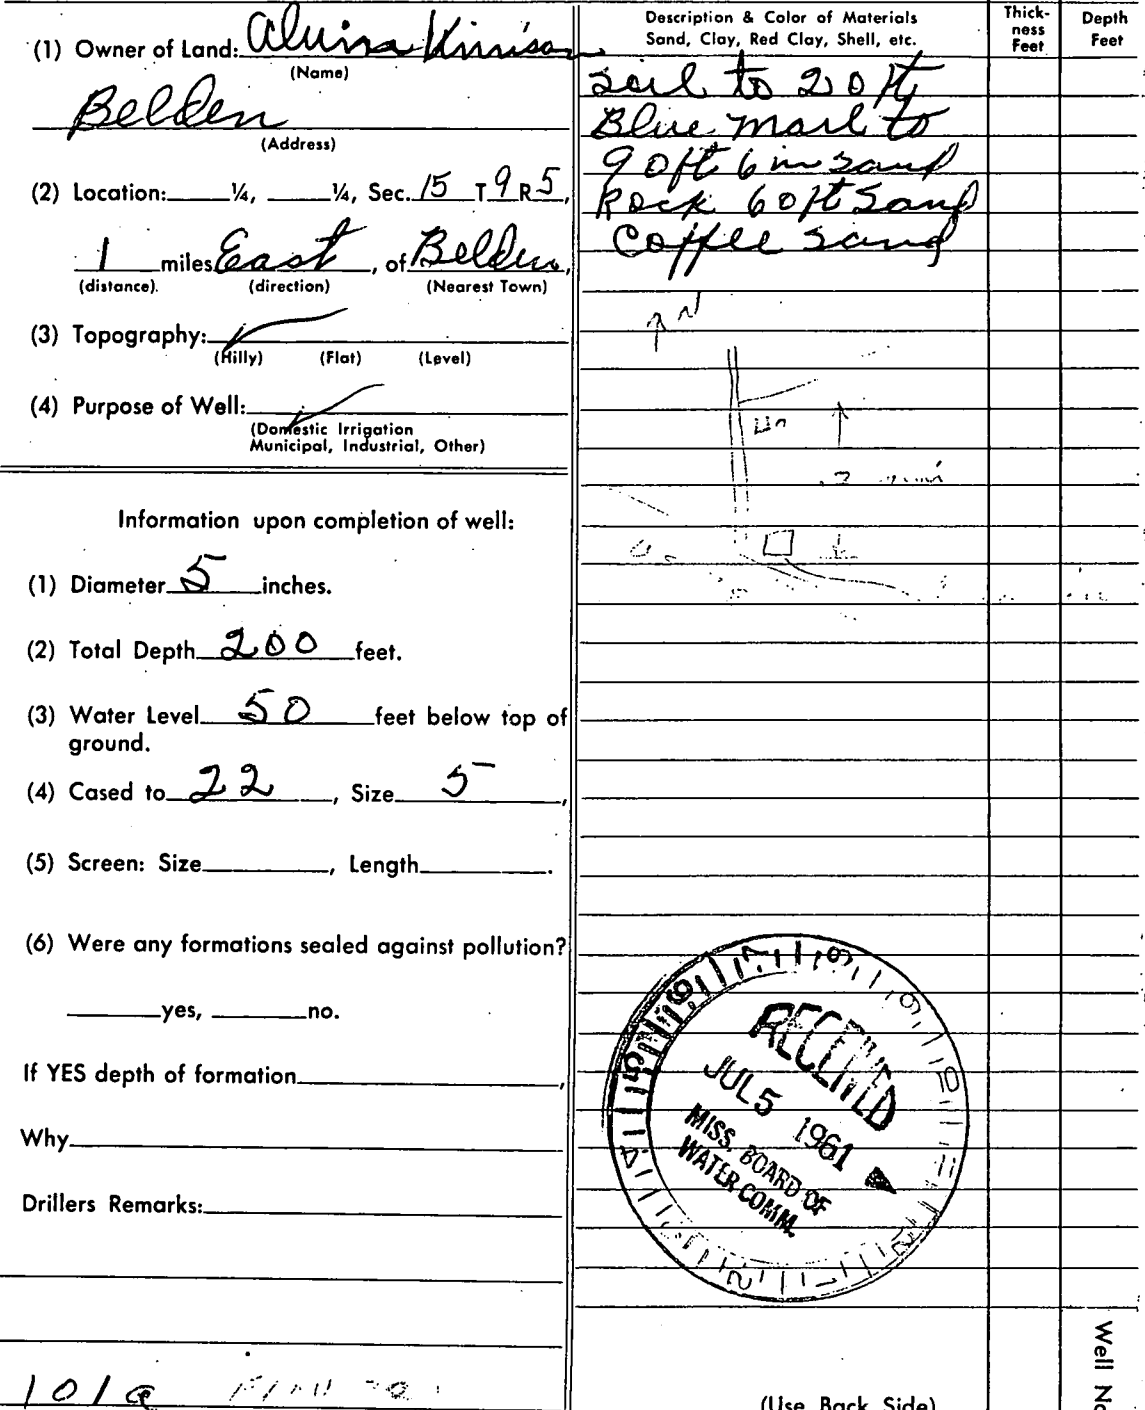 (1) Owner of Land: Alvina Kinison
(Name)
Belden
(Address)
(2) Location: ¼, ¼, Sec. 15 T 9 R 5,
1 miles East, of Belden,
(distance). (direction) (Nearest Town)
(3) Topography:
(Hilly) (Flat) (Level)
(4) Purpose of Well:
(Domestic Irrigation
Municipal, Industrial, Other)
Information upon completion of well:
(1) Diameter 5 inches.
(2) Total Depth 200 feet.
(3) Water Level 50 feet below top of
ground.
(4) Cased to 22, Size 5,
(5) Screen: Size, Length.
(6) Were any formations sealed against pollution?
yes, no.
If YES depth of formation,
Why
Drillers Remarks:
101a
Description & Color of Materials
Sand, Clay, Red Clay, Shell, etc.
Thick-
ness
Feet
Depth
Feet
Soil to 20 ft
Blue Marl to
90 ft 6 in sand
Rock 60 ft Sand
Coffee sand
N
RECEIVED
JUL 5 1961
MISS. BOARD OF
WATER COMM.
(Use Back Side)
Well No